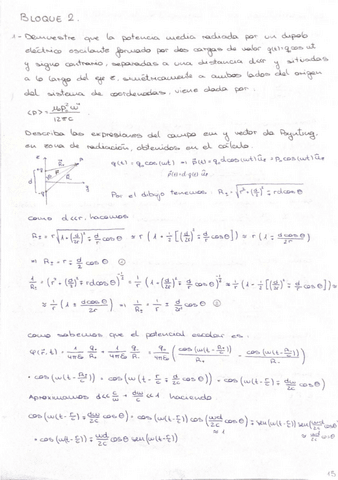 BLOQUE 2.
1- Demuestre que la potencia media radiada por un dipolo
eléctrico oscilante formado por dos cargas de valor q(t)=q₀cos ωt
y signo contrario, separadas a una distancia d<<r y situadas
a lo largo del eje z, simétricamente a ambos lados del origen
del sistema de coordenadas, viene dada por:
<P> = μ₀P₀²ω⁴ / 12πc
Describa las expresiones del campo em y vector de Poynting,
en zona de radiación, obtenidos en el cálculo.
q(t) = q₀cos(ωt) ⇒ p⃗(t) = q₀d cos(ωt) û_z = P₀cos(ωt) û_z
Por el dibujo tenemos: R± = √(r² + (d/2)² ∓ rd cos θ)
como d<<r, hacemos
R± = r √(1 + (d/2r)² ∓ d/r cos θ) ≈ r (1 + ½[(d/2r)² ∓ d/r cos θ]) ≈ r (1 ∓ d cos θ/2r)
⇒ R± = r ∓ d/2 cos θ ①
≈ 1/r (1 ± d cos θ/2r) ⇒ 1/R± = 1/r ± d/2r² cos θ ②
como sabemos que el potencial escalar es:
• cos(ω(t - R±/c)) = cos(ω(t - r/c ± d/2c cos θ)) = cos(ω(t - r/c) ± dω/2c cos θ)
Aproximamos d << c/ω ⇒ dω/c << 1 haciendo
= cos(ω(t - r/c)) ∓ ωd/2c cos θ sen(ω(t - r/c))
15